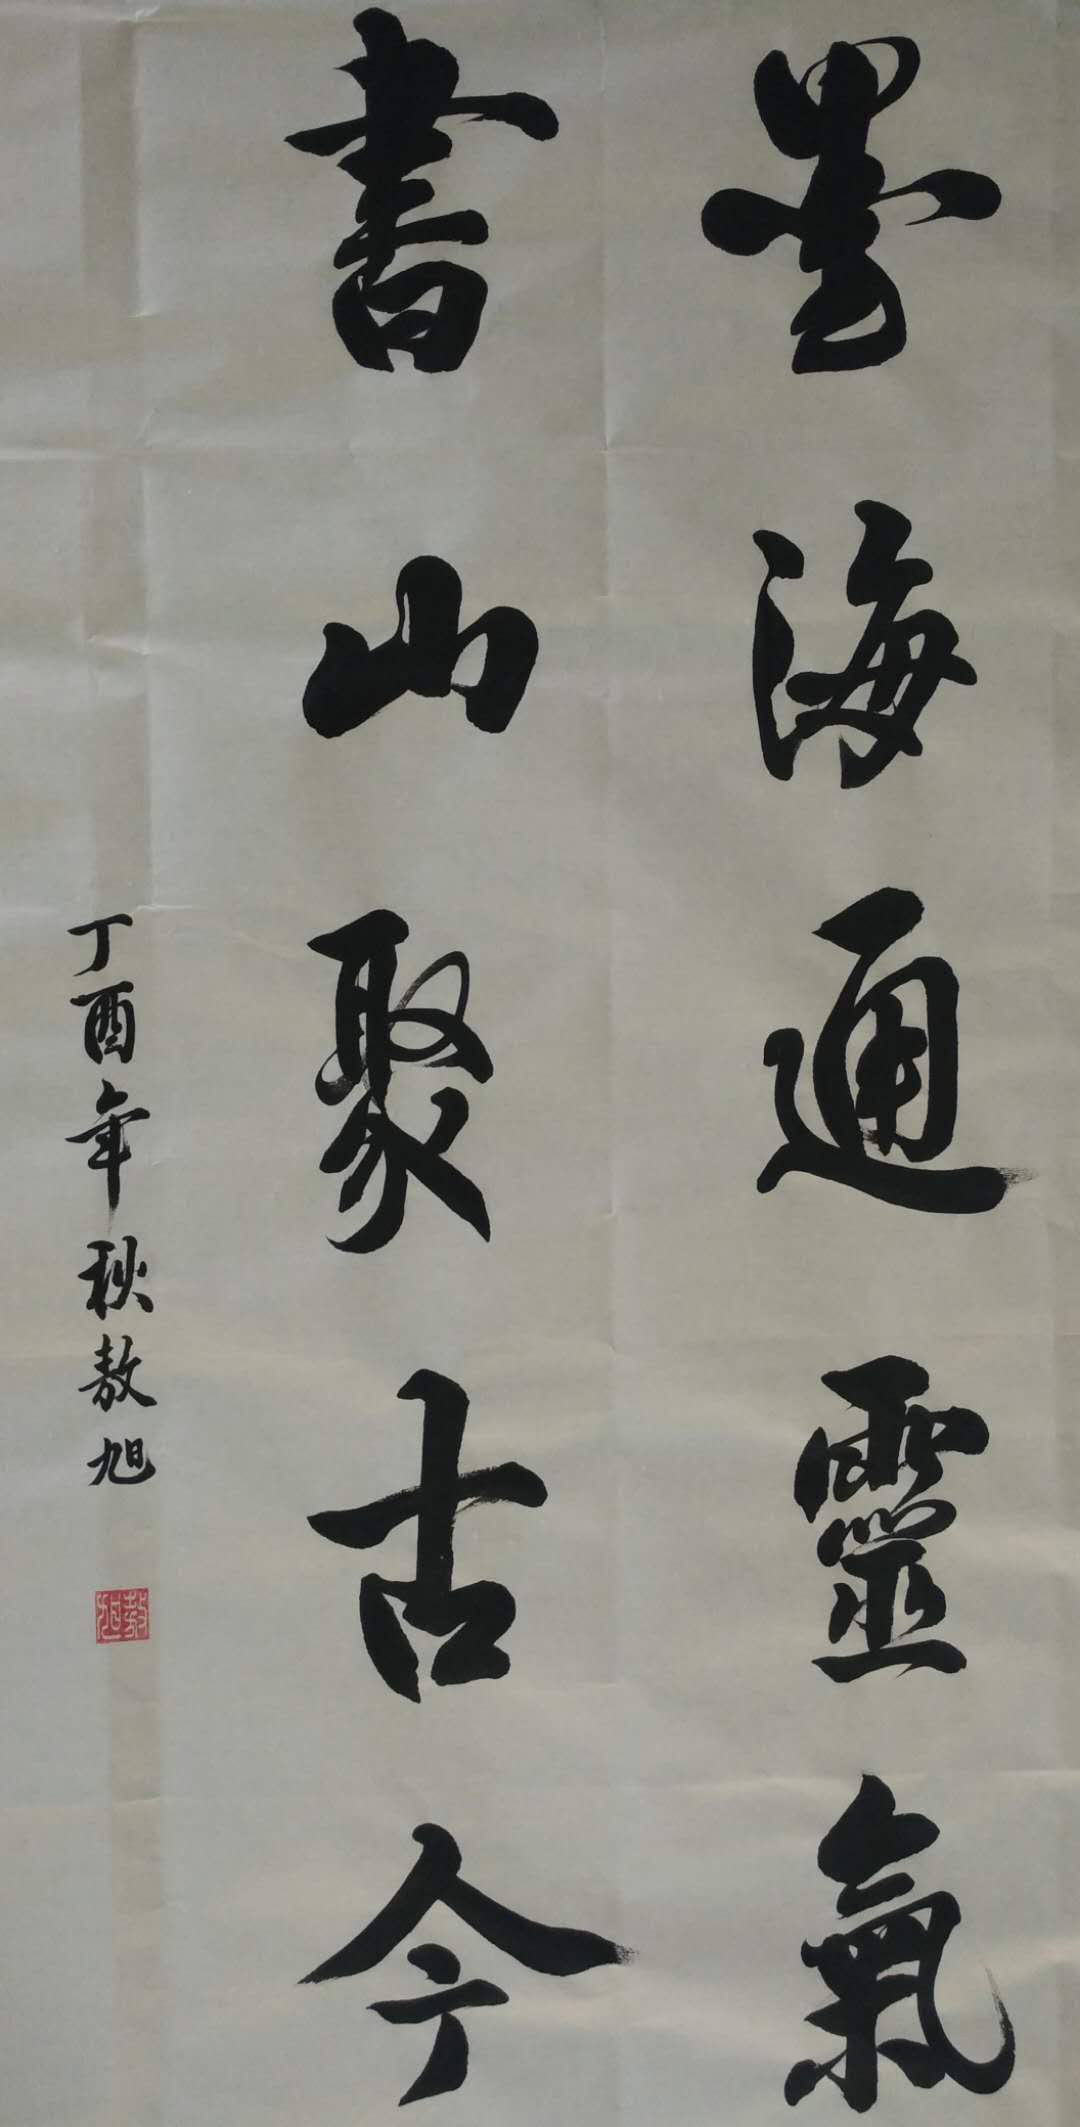 墨海通靈氣
書山聚古今
丁酉年秋敖旭
敖旭